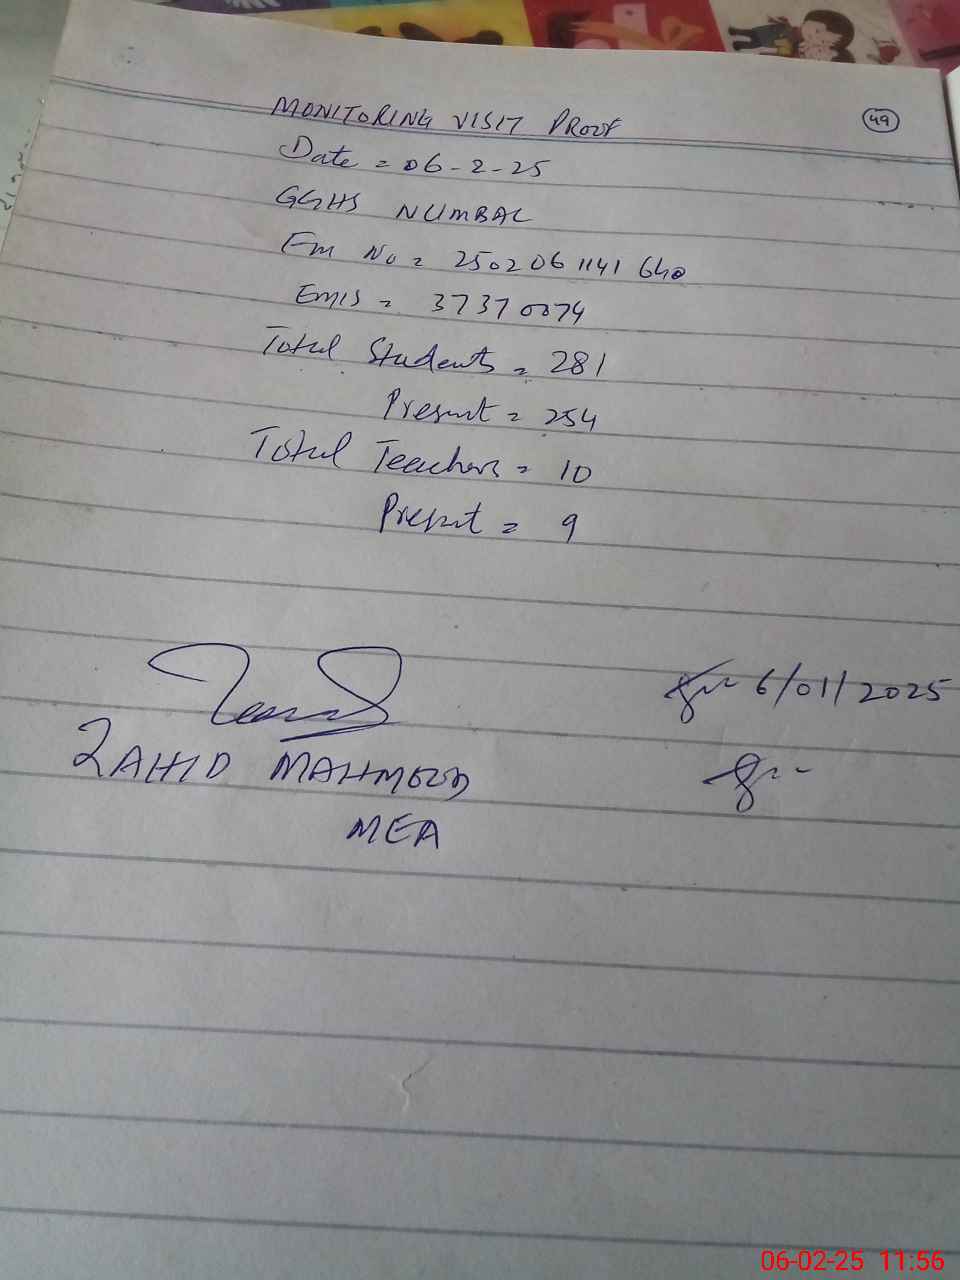 MONITORING VISIT PROOF
49
Date = 06-2-25
GGHS NUMBAL
Em No = 2502061141640
Emis = 37370074
Total Students = 281
Present = 254
Total Teachers = 10
Present = 9
6/01/2025
ZAHID MAHMOOD
MEA
06-02-25 11:56